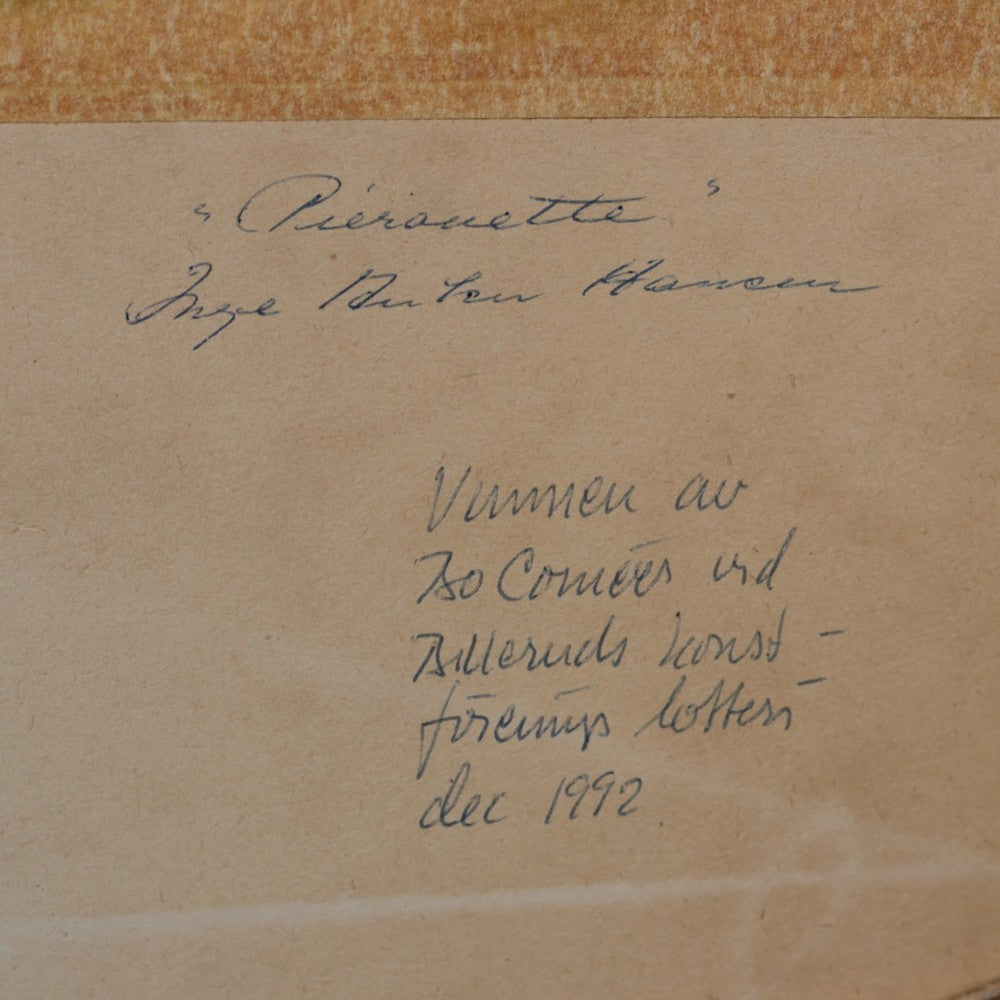 "Pieronette"
Inge Anker Hansen
Vunnen av
Bo Cornéer vid
Billeruds konst-
förenings lotteri
dec 1992